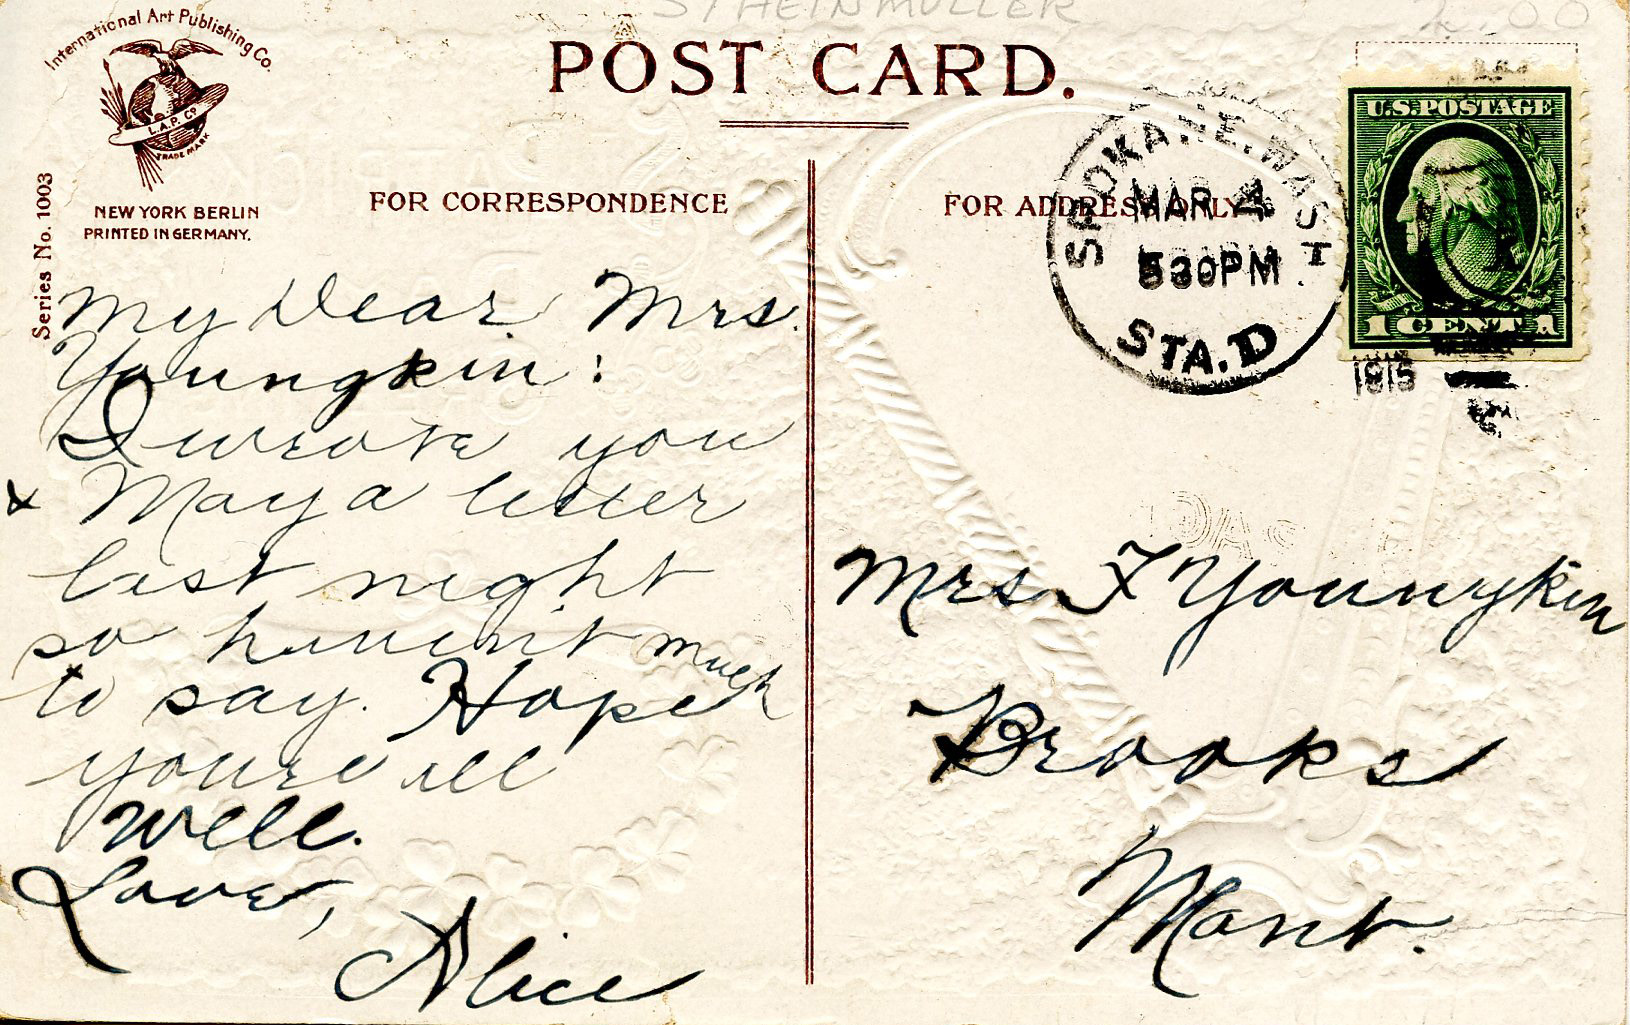 STHEINMULLER
2.00
International Art Publishing Co.
I.A.P. Co
TRADE MARK
POST CARD.
U.S. POSTAGE
1 CENT 1
SPOKANE, WASH
MAR 4
530PM
STA. D
1915
NEW YORK BERLIN
PRINTED IN GERMANY.
Series No. 1003
FOR CORRESPONDENCE
FOR ADDRESS ONLY
My Dear Mrs.
Youngkin:
I wrote you
& May a letter
last night
so haven't much
to say. Hope
youre all
well.
Love,
Alice
Mrs F Youngkin
Brooks
Mont.